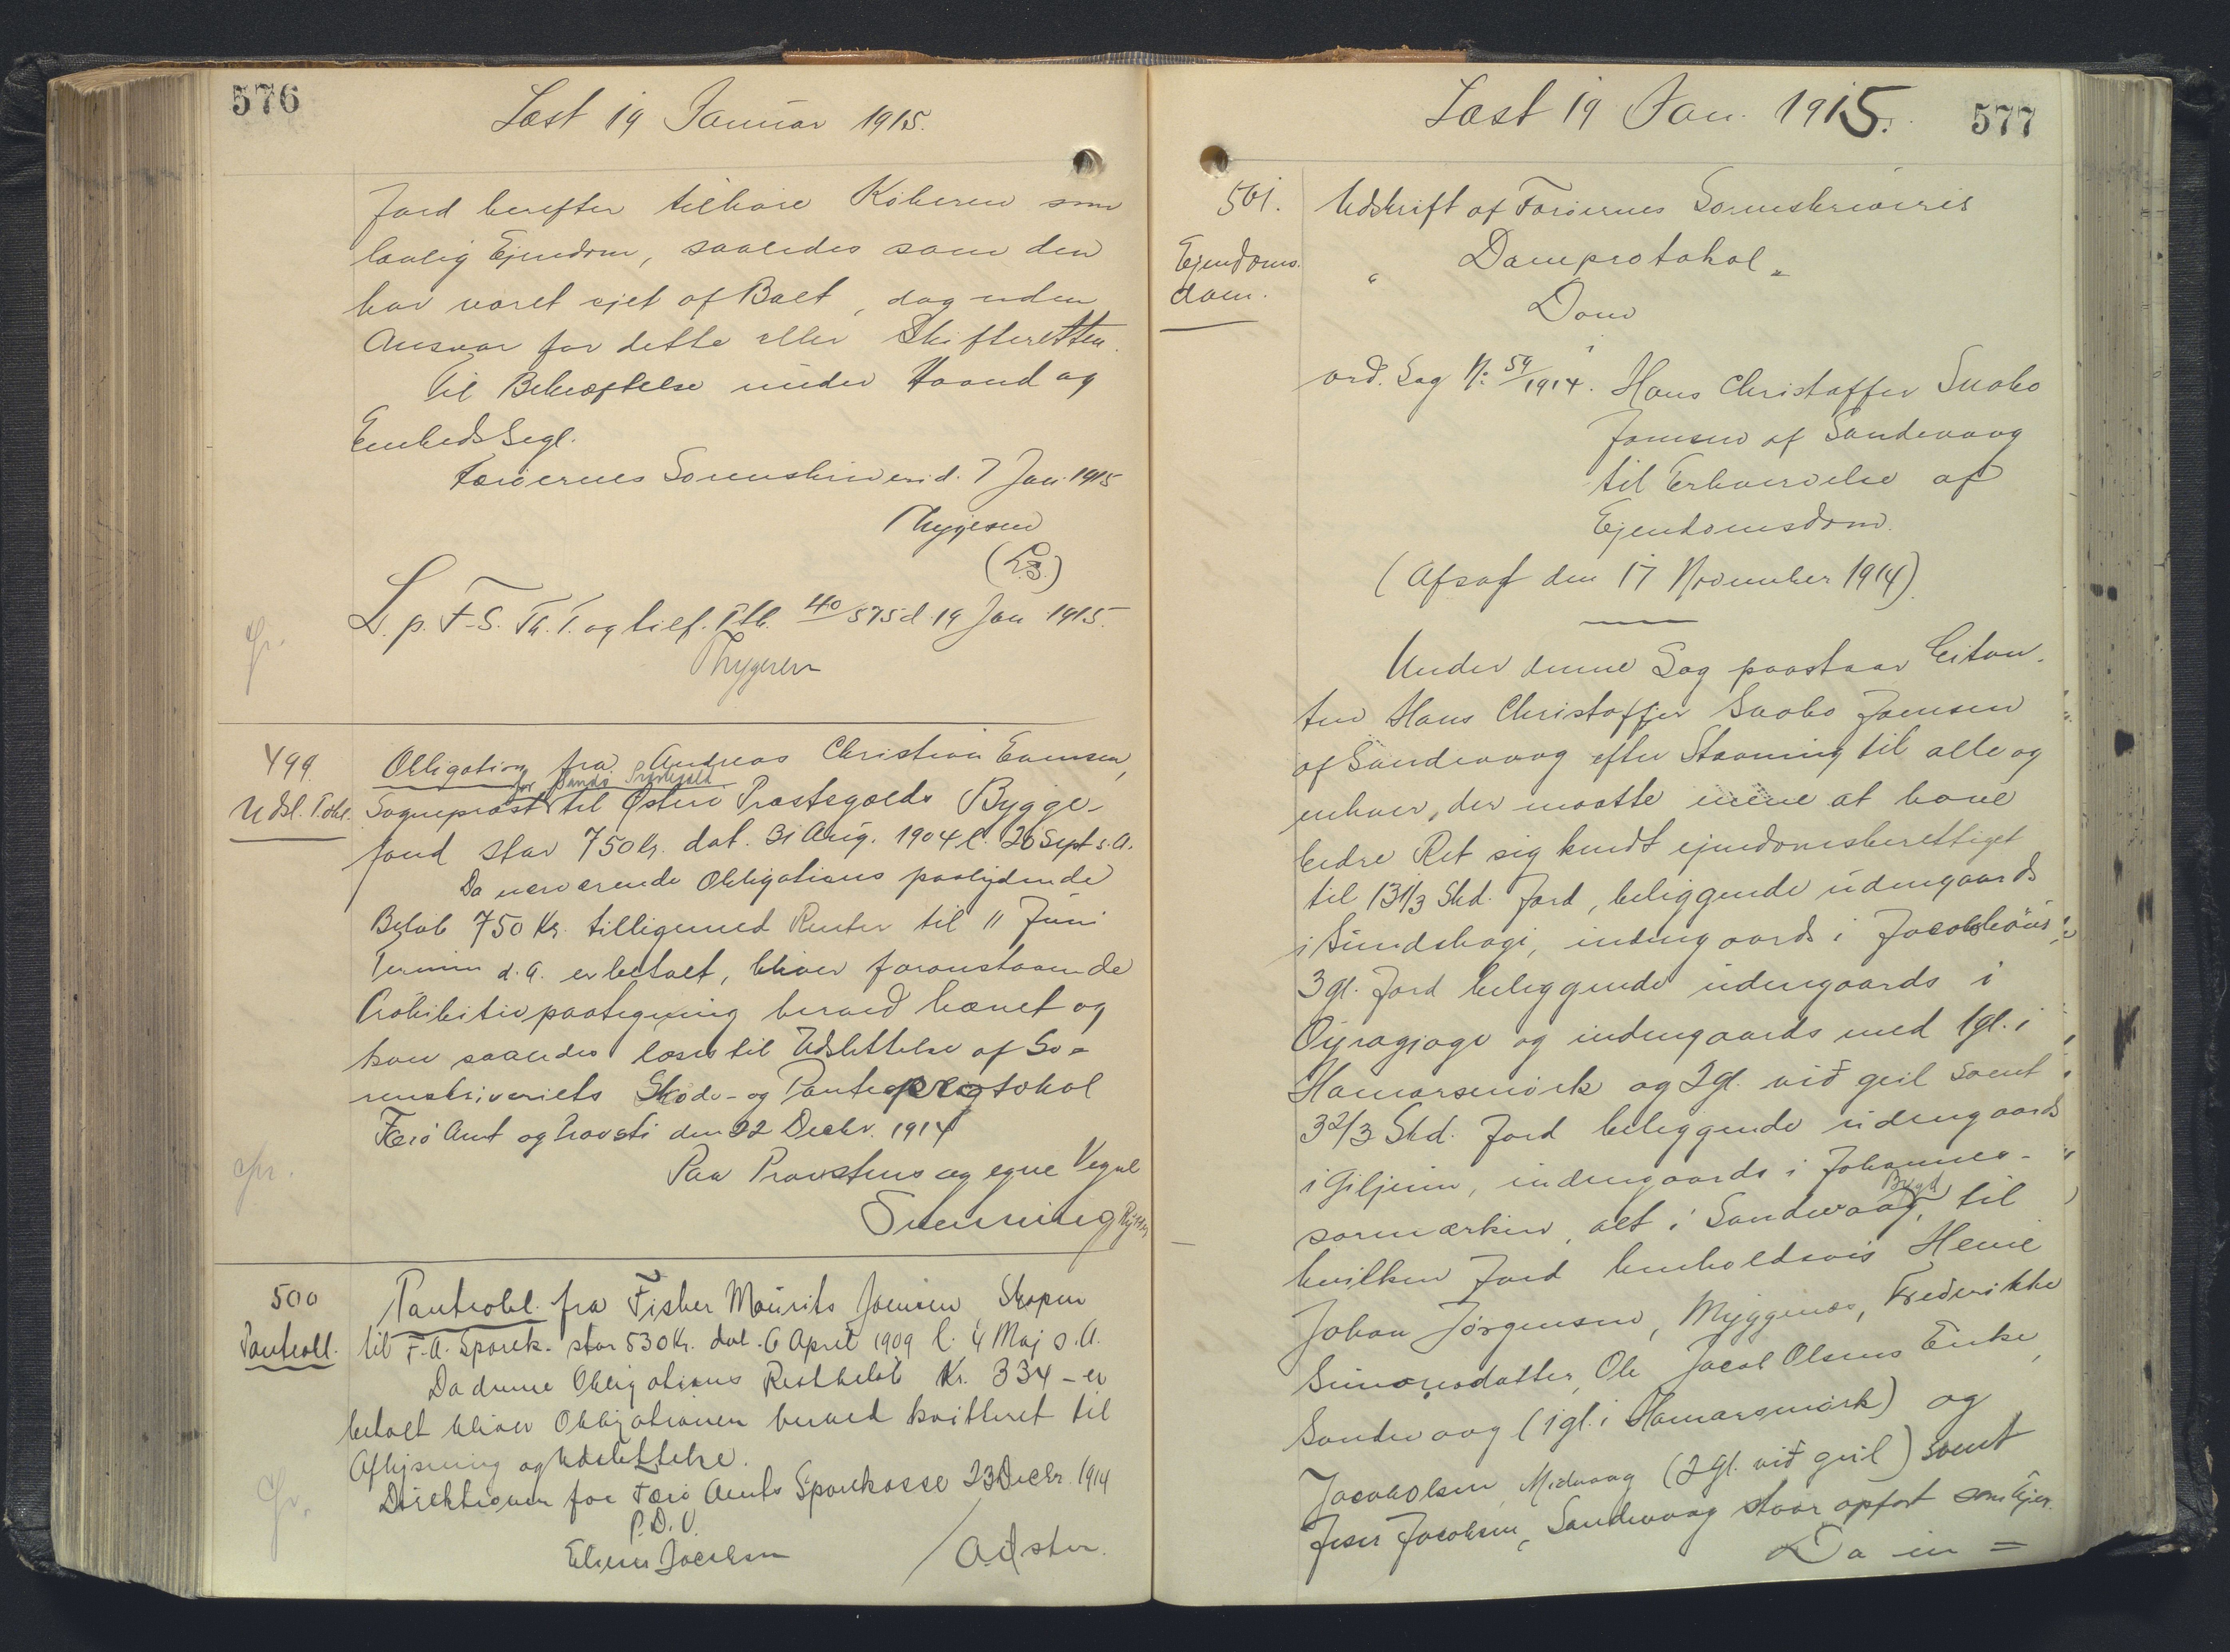 576
Læst 19 Januar 1915.
Jord herefter tilhøre Køberen som
lovlig Ejendom, saaledes som den
har været ejet af Boet, dog uden
Ansvar for dette eller Skifteretten.
Til Bekræftelse under Haand og
Embeds Segl.
Færøernes Sorenskriveri d. 7 Jan. 1915
Thygesen
(L.S.)
L. p. F.S. Th. T. og tilf. Ptb. 40/575 d. 19 Jan 1915.
Thygesen
499.
Udsl. Obl.
Obligation fra Andreas Christian Evensen,
for Sandø Præstegæld
Sognepræst til Østerø Præstegælds Bygge-
fond stor 750 Kr. dat. 31 Aug. 1904 l. 26 Sept s.A.
Da nærværende Obligations paalydende
Beløb 750 Kr. tilligemed Renter til 11 Juni
Termin d.A. er betalt, bliver foranstaaende
Prohibitivpaategning herved hævet og
kan saaledes læses til Udslettelse af So-
renskriveriets Skøde- og Panteprotokol
Færø Amt og Provsti den 22 Decbr. 1914
Paa Provstens og egne Vegne
Svenning Rytter
500
Panteobl.
Panteobl. fra Fisker Mourits Joensen Skopun
til F.A. Sparek. stor 530 Kr. dat. 6 April 1909 l. 4 Maj s.A.
Da denne Obligations Restbeløb Kr. 334 - er
betalt bliver Obligationen herved kvitteret til
Aflysning og Udslettelse.
Direktionen for Færø Amts Sparekasse 23 Decbr. 1914
P.D.V.
Jacobsen
577
Læst 19 Jan. 1915.
501.
Ejendoms-
dom.
Udskrift af Færøernes Sorenskriveris
" Domprotokol "
Dom
i
ord. Sag No 54/1914. Hans Christoffer Suabo
Joensen af Sandevaag
til Erhvervelse af
Ejendomsdom.
(Afsagt den 17 November 1914)
Under denne Sag paastaar Citan-
ten Hans Christoffer Suabo Joensen
af Sandevaag efter Stævning til alle og
enhver, der maatte mene at have
bedre Ret sig kendt ejendomsberettiget
til 13 1/3 Skd. Jord, beliggende udengaards
i Sundshagi, indengaards i Jacobshøus
3 gl. Jord beliggende udengaards i
Oyragjógv og indengaards med 1 gl. i
Hamarsmørk og 2 gl. við geil samt
3 2/3 Skd. Jord beliggende udengaards
i Giljenni, indengaards i Johannes-
sarmærkin, alt i Sandevaag, Bygd til
hvilken Jord henholdsvis Heine
Johan Jørgensen, Myggenæs, Frederikke
Simonsdatter, Ole Jacob Olsens Enke,
Sandevaag (1 gl. i Hamarsmørk) og
Jacob Olsen, Midvaag (2 gl. við geil) samt
Joen Jacobsen, Sandevaag staar opført som Ejer.
Da en =